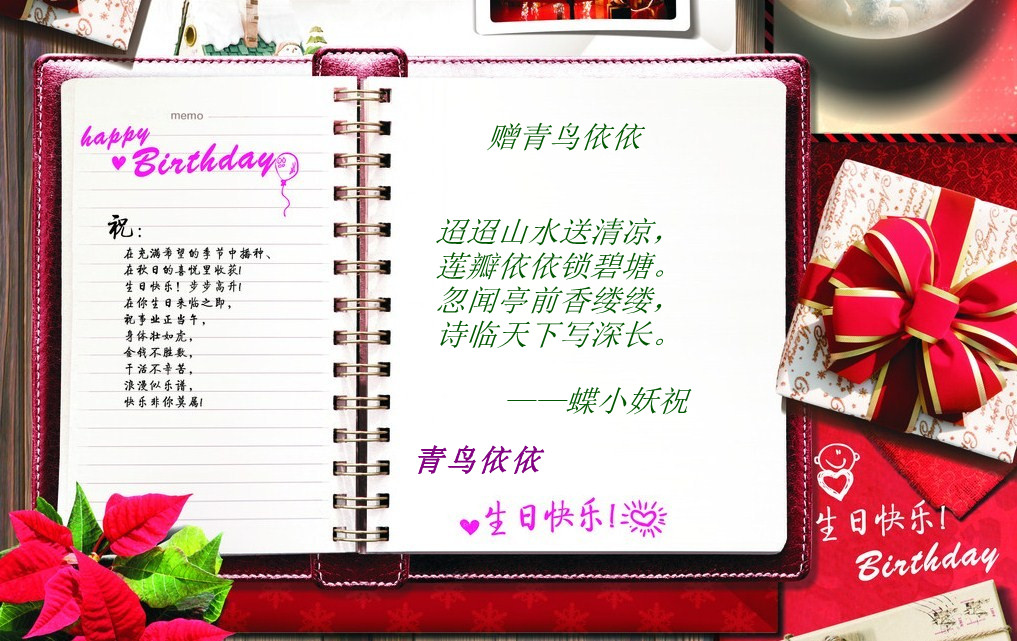 memo
happy
Birthday
祝:
在充满希望的季节中播种、
在秋日的喜悦里收获!
生日快乐! 步步高升!
在你生日来临之即,
祝事业正当午,
身体壮如虎,
金钱不胜数,
干活不辛苦,
浪漫似乐谱,
快乐非你莫属!
赠青鸟依依
迢迢山水送清凉，
莲瓣依依锁碧塘。
忽闻亭前香缕缕，
诗临天下写深长。
——蝶小妖祝
青鸟依依
生日快乐!
生日快乐!
Birthday